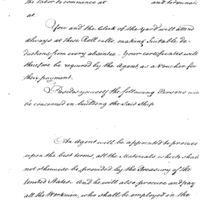 the labor to commence at and terminate
at
You and the clerk of the yard will attend
always at these Roll calls, making suitable de-
ductions from every absentee. Your certificates will
therefore be required by the Agent, as a voucher for
their payment.
Besides yourself the following Persons will
be concerned in building the said Ship.
An Agent will be appointed to procure
upon the best terms, all the Materials which shall
not otherwise be provided by the Treasury of the
United States. And he will also procure and pay
all the Workmen, who shall be employed in the